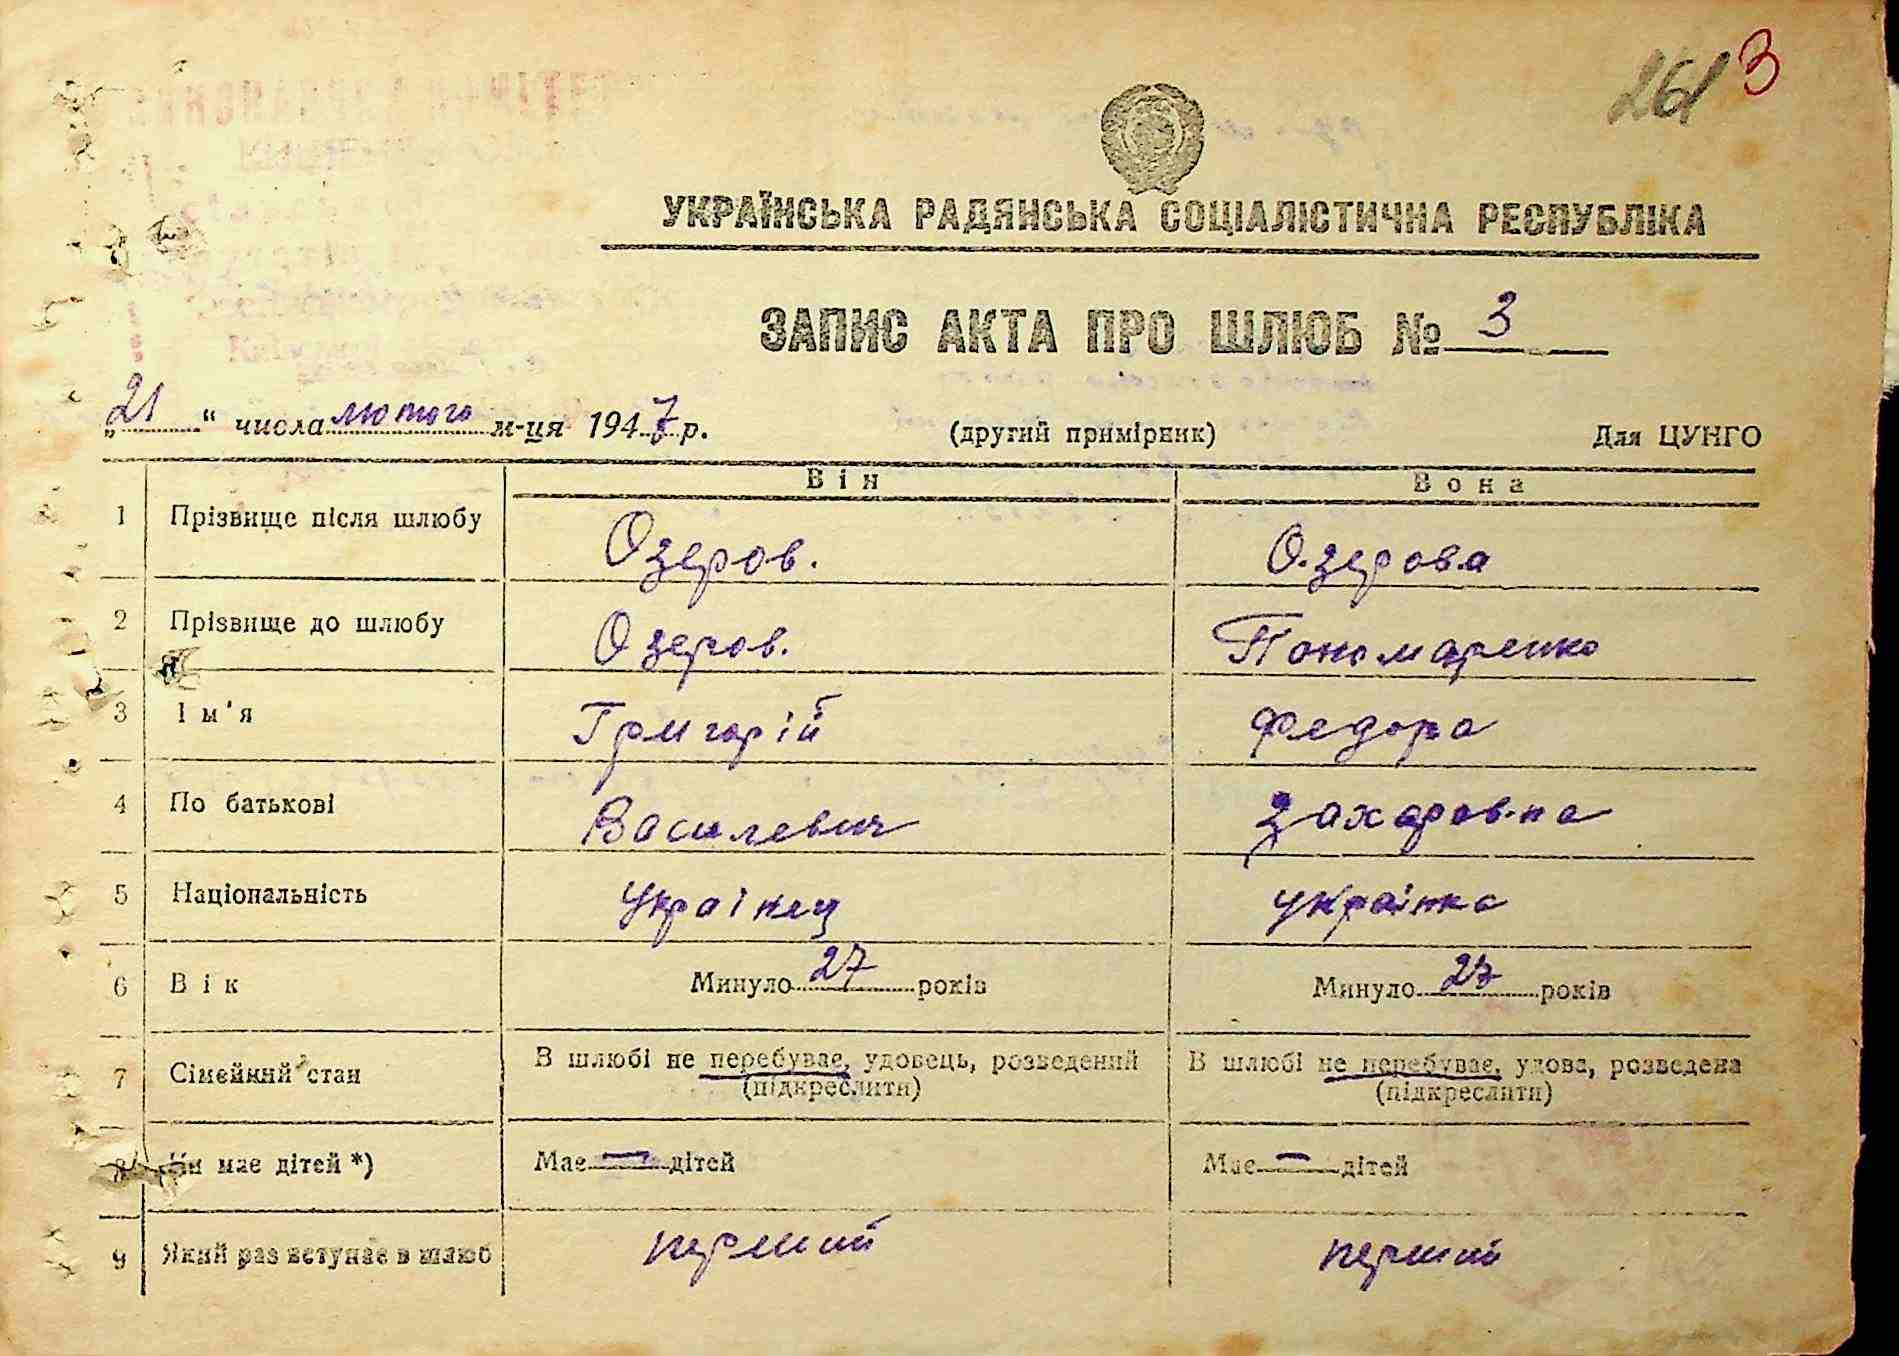 261 3
УКРАЇНСЬКА РАДЯНСЬКА СОЦІАЛІСТИЧНА РЕСПУБЛІКА
ЗАПИС АКТА ПРО ШЛЮБ № 3
„21“ числа лютого м-ця 1947 р. (другий примірник) Для ЦУНГО
Він Вона
1 Прізвище після шлюбу Озеров. Озерова
2 Прізвище до шлюбу Озеров. Пономаренко
3 Ім'я Григорій Федора
4 По батькові Василевич Захаровна
5 Національність українец українка
6 Вік Минуло 27 років Минуло 27 років
7 Сімейний стан В шлюбі не перебуває, удовець, розведений В шлюбі не перебуває, удова, розведена
(підкреслити) (підкреслити)
8 Чи має дітей *) Має — дітей Має — дітей
9 Який раз вступає в шлюб перший перший